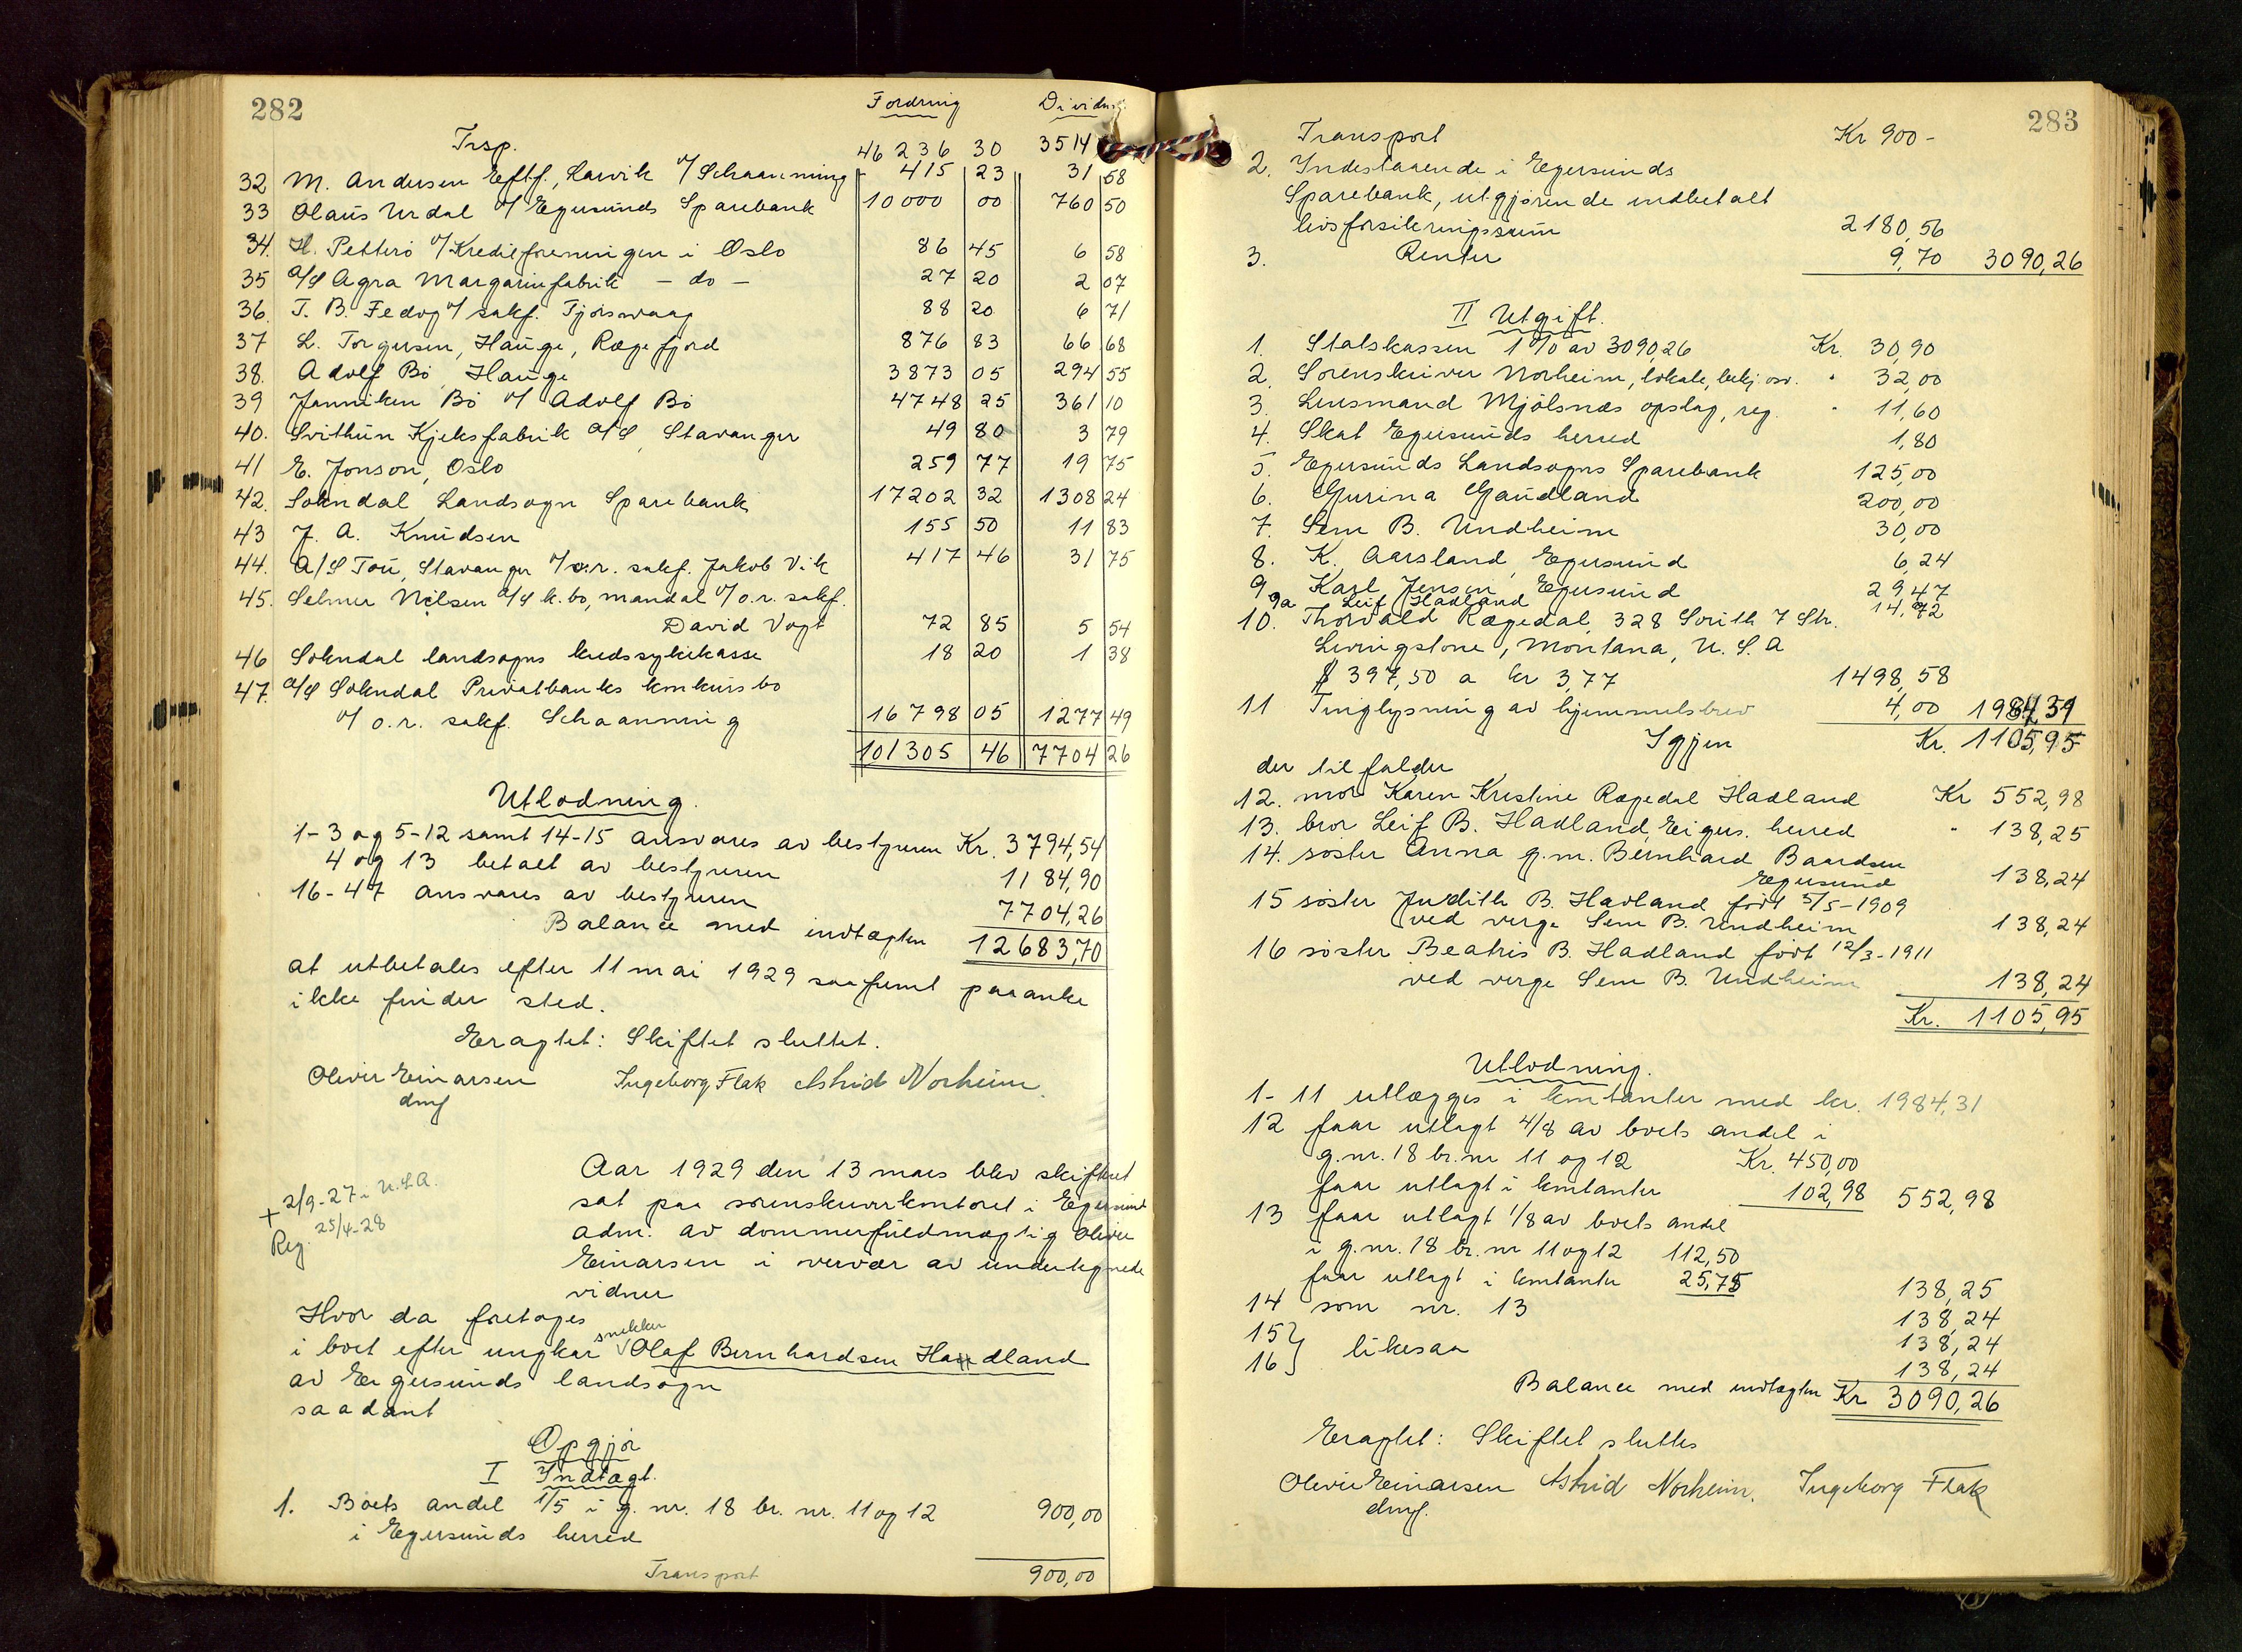 282
Fordring Divid
Trsp. 46 236 30 3514
32 M. Andersen Eftf., Larvik v/ Schaanning 415 23 31 58
33 Olaus Urdal v/ Egersunds Sparebank 10000 00 760 50
34. H. Petterö v/ Kreditforeningen i Oslo 86 45 6 58
35 A/S Agra Margarinfabrik – do – 27 20 2 07
36. T. B. Fedog v/ sakf. Tjörsvaag 88 20 6 71
37 L. Torgersen, Hauge, Rægefjord 876 83 66 68
38. Adolf Bö, Hauge 3873 05 294 55
39 Janniken Bö v/ Adolf Bö 4748 25 361 10
40. Svithun Kjeksfabrik A/S, Stavanger 49 80 3 79
41 E. Jonson, Oslo 259 77 19 75
42. Sokndal Landsogn Sparebank 17202 32 1308 24
43 J. A. Knudsen 155 50 11 83
44. A/S Tou, Stavanger v/ o.r. sakf. Jakob Vik 417 46 31 75
45. Selmer Nilsen A/S k. bo, Mandal v/ o.r. sakf.
David Vogt 72 85 5 54
46 Sokndal landsogns kredssykekasse 18 20 1 38
47. A/S Sokndal Privatbanks konkursbo
v/ o.r. sakf. Schaanning 16798 05 1277 49
101305 46 7704 26
Utlodning.
1-3 og 5-12 samt 14-15 ansvares av bestyreren Kr. 3794,54
4 og 13 betalt av bestyreren 1184,90
16-47 ansvares av bestyreren 7704,26
Balance med indtægten 12683,70
at utbetales efter 11 mai 1929 saafremt paaanke
ikke finder sted.
Eragtet: Skiftet sluttet.
Oliver Einarsen Ingeborg Flak Astrid Norheim.
dmf
Aar 1929 den 13 mars blev skifteret
sat paa sorenskriverkontoret i Egersund
adm. av dommerfuldmægtig Oliver
Einarsen i nærvær av undertegnede
vidner
+ 2/9-27 i U.S.A.
Reg. 25/4-28
Hvor da foretoges
snekker
i boet efter ungkar Olaf Bernhardsen Hadland
av Eigersunds landsogn
saadant
Opgjör
I Indtægt.
1. Boets andel 1/5 i g. nr. 18 br. nr. 11 og 12 900,00
i Egersunds herred
Transport 900,00
283
Transport Kr 900 –
2. Indestaaende i Egersunds
Sparebank, utgjörende indbetalt
livsforsikringssum 2180,56
3. Renter 9,70 3090,26
II Utgift.
1. Statskassen 1 % av 3090,26 Kr. 30,90
2. Sorenskriver Norheim, lokale, bekj. osv. " 32,00
3. Lensmand Mjölsnæs opslag, reg. " 11,60
4. Skat Egersunds herred 1,80
5. Egersunds Landsogns Sparebank 125,00
6. Gurina Gaudland 200,00
7. Sem B. Undheim 30,00
8. K. Aarsland, Egersund 6,24
9 Karl Jensen, Egersund 29,47
9a Leif Hadland 14,72
10. Thorvald Rægedal, 328 South 7 Str.
Livingstone, Montana, U.S.A
$ 397,50 a kr 3,77 1498,58
11 Tinglysning av hjemmelsbrev 4,00 1984,31
Igjen Kr. 1105,95
der tilfalder
12. mor Karen Kristine Rægedal Hadland Kr 552,98
13. bror Leif B. Hadland, Eigers. herred " 138,25
14. söster Anna g.m. Bernhard Baardsen
Egersund 138,24
15 söster Judith B. Hadland född 5/5-1909
ved verge Sem B. Undheim 138,24
16 söster Beatris B. Hadland född 12/3-1911
ved verge Sem B. Undheim 138,24
Kr. 1105,95
Utlodning.
1-11 utlægges i kontanter med kr. 1984,31
12 faar utlagt 4/8 av boets andel i
g.nr. 18 br. nr 11 og 12 Kr. 450,00
faar utlagt i kontanter 102,98 552,98
13 faar utlagt 1/8 av boets andel
i g.nr. 18 br. nr 11 og 12 112,50
faar utlagt i kontanter 25,75 138,25
14 som nr. 13 138,24
15} likesaa 138,24
16} 138,24
Balance med indtægten Kr 3090,26
Eragtet: Skiftet sluttes
Oliver Einarsen Astrid Norheim. Ingeborg Flak
dmf.